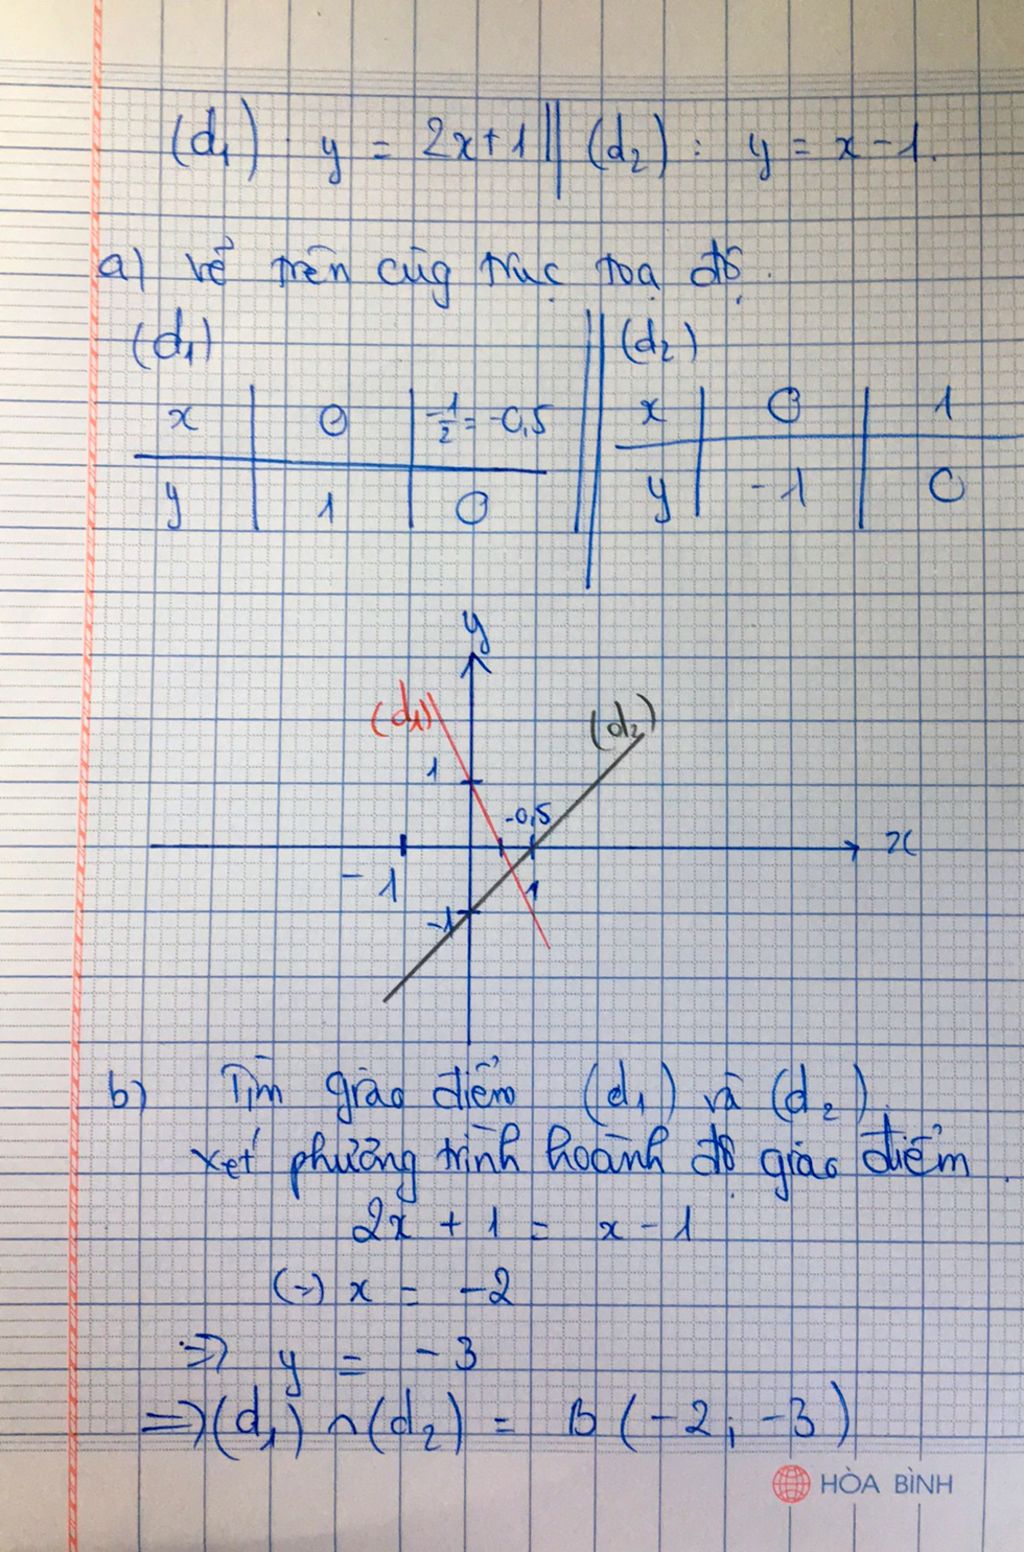 (d₁) : y = 2x+1 || (d₂) : y = x-1.
a) vẽ trên cùg trục toạ độ.
(d₁) || (d₂)
x | 0 | -1/2 = -0,5 || x | 0 | 1
y | 1 | 0 || y | -1 | 0
y
(d₁) (d₂)
1
-0,5
x
-1 1
-1
b) Tìm giao điểm (d₁) và (d₂).
xét phương trình hoành độ giao điểm
2x + 1 = x - 1
(=) x = -2
=> y = -3
=> (d₁) ∩ (d₂) = B (-2; -3)
HÒA BÌNH